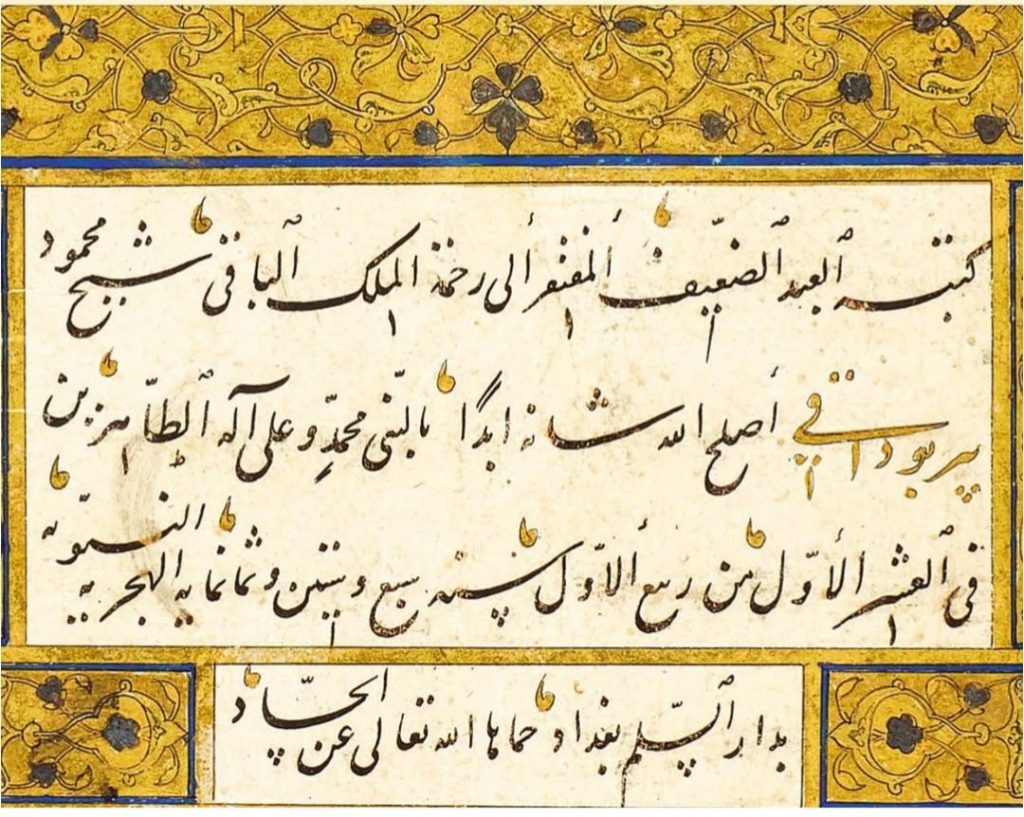 كتبه العبد الضعيف المفتقر الى رحمة الملك الباقي شيخ محمود
پير بوداقي أصلح الله شانه ابدًا بالنبي محمّدٍ وعلى آله الطّاهرين
في العشر الأوّل من ربيع الأوّل سنه سبع وستين وثمانمايه الهجريه النبويه
بدار السّلم بغداد حماها الله تعالى عن